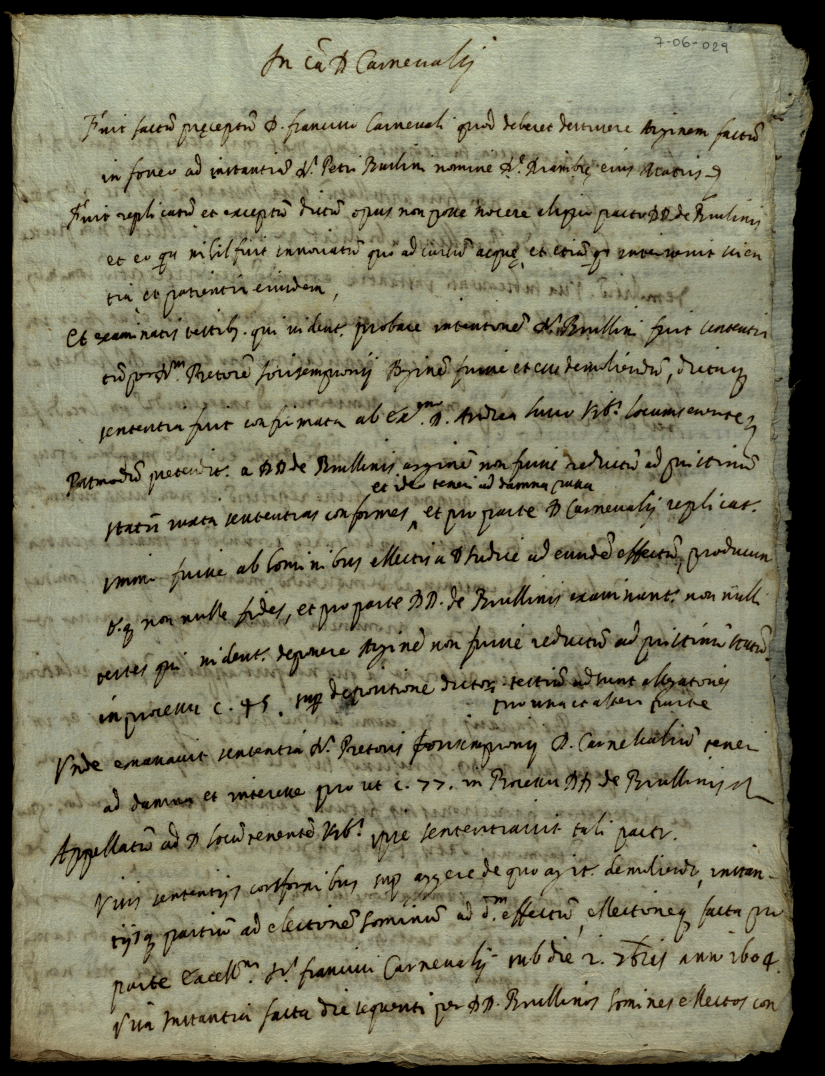 7-06-029
In cã D Carnevalij
Fuit factũ pręceptũ D. francisco Carnevali quod deberet destruere Arginem factũ
in foveo ad instantiã D. Petri Brulini nomine Dę eius Matris
Fuit replicatũ et exceptũ dictũ opus non posse nocere aliquo pacto DD. de Brulinis
et eo qa nihil fuit innovatũ quo ad cursũ acquę, et etiã qa intervenit scien
tia, et patientia eiusdem,
Et examinatis testibs. qui vident. probare intentionẽ D. Brullini fuit sententia
tũ per D. Pretorẽ forisempronij Arginẽ fuisse et esse demoliendũ, dictaq
sententia fuit confirmata ab Exmo D. Andrea Urbi locumtenente
Postmodũ pretendit. a DD de Brullinis arginẽ non fuisse reductũ ad pristinũ
et ideo teneri ad damna
statũ iuxta sententias conformes, et pro parte D Carnevalij replicat.
immo fuisse ab hominibus ellectis a D Iudice ad eundẽ effectũ, producun
tr.q non nulle fides, et pro parte DD. de Brullinis examinant. non nulli
testes qui vident. deponere Arginẽ non fuisse reductũ ad pristinũ statũ
in processu c. 45. sup depositione dictor. testiũ adsunt allegationes
pro una et altera parte
Unde emanavit sententia D. Pretoris forisempronij D. Carnevaliũ teneri
ad damna et interesse pro ut c. 77. in Processu DD de Brullinis
Appellatũ ad D locũtenentẽ Urbi. ipse sententiavit tali pacto.
Visis sententijs conformibus sup aggere de quo agit. demoliendo, instan-
tijsq partiũ ad electionẽ hominũ ad dm. effectũ, ellectioneq facta pro
parte Excellmi. D. francisci Carnevalij sub die 2. Xbris anni 1604.
Visa Instantia facta die sequenti per DD. Brullinos homines ellectos con